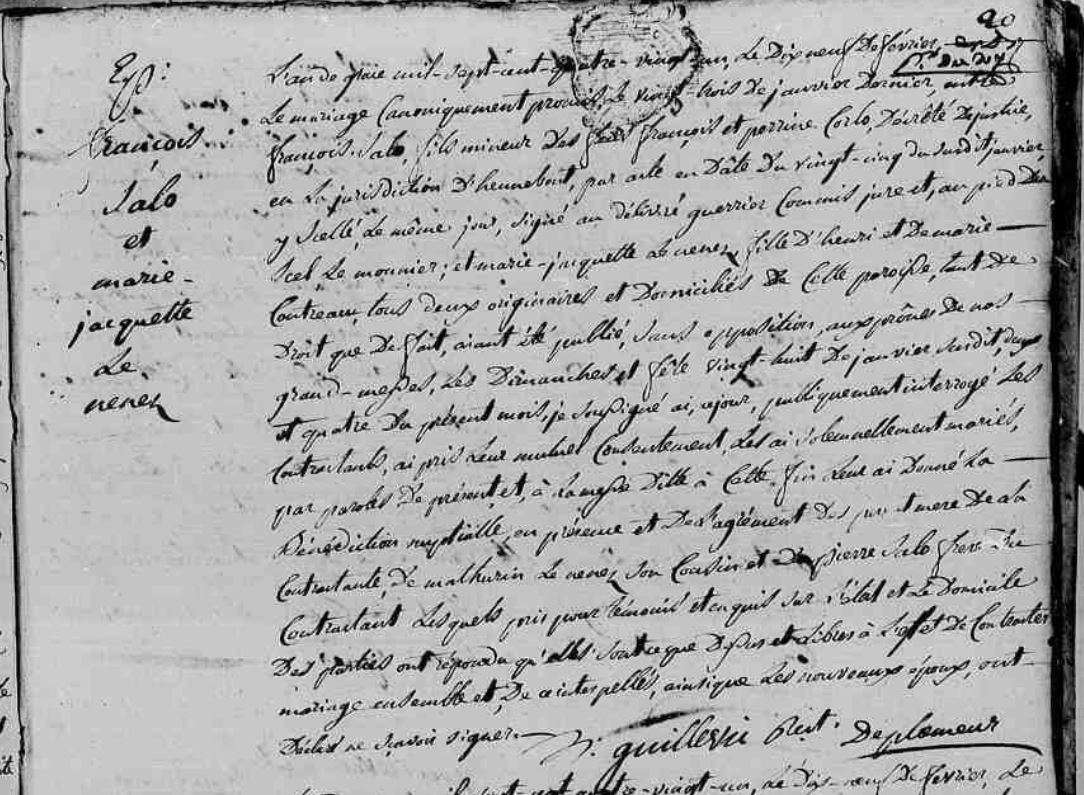 20
Ep:
françois
Salo
et
marie-
jacquette
Le
nenez
L'an de grace mil-sept-cent-quatre-vingt-un, Le Dix neuf De février,
Le mariage Canoniquement promis, Le vingt-trois de janvier Dernier, entre
françois Salo, fils mineur Des feus françois et perrine Corlo, Décrêté De justice,
en La jurisdiction D'hennebont, par acte en Dâte Du vingt-cinq du susdit janvier,
y Scellé, Le même jour, signé au délivré guerrier Commis juré et, au pied Du
Scel Le monnier; et marie-jacquette Le nenez fille D'henri et De marie-
Contream, tous deux originaires et Domiciliés De Cette paroisse, tant De
Droit que De fait, aiant été publié, Sans opposition, aux prônes De nos
grand-messes, Les Dimanches et fête vingt-huit De janvier Susdit, deux
et quatre Du présent mois, je Soussigné ai, ce jour, publiquement interrogé Les
Contractants, ai pris Leur mutuel Consentement, Les ai Solemnellement mariés,
par paroles De présent et, à La messe Ditte à Cette fin Leur ai Donné La
Bénédiction nuptialle, en présence et De L'agrément Des pere et mere De La
Contractante, De mathurin Le nenez Son Cousin et De pierre Salo frere Du
Contractant Lesquels pris pour témoins et enquis Sur L'état et Le Domicile
Des parties ont répondu qu'elles Sont ce que Dessus et Libres à L'effet De Contracter
mariage ensemble et, De ce interpellés, ainsi que Les nouveaux époux, ont
Déclaré ne Sçavoir signer.
guillevin Rect. De plœmeur
mil-sept-cent-quatre-vingt-un, Le Dix-neuf De février, Le